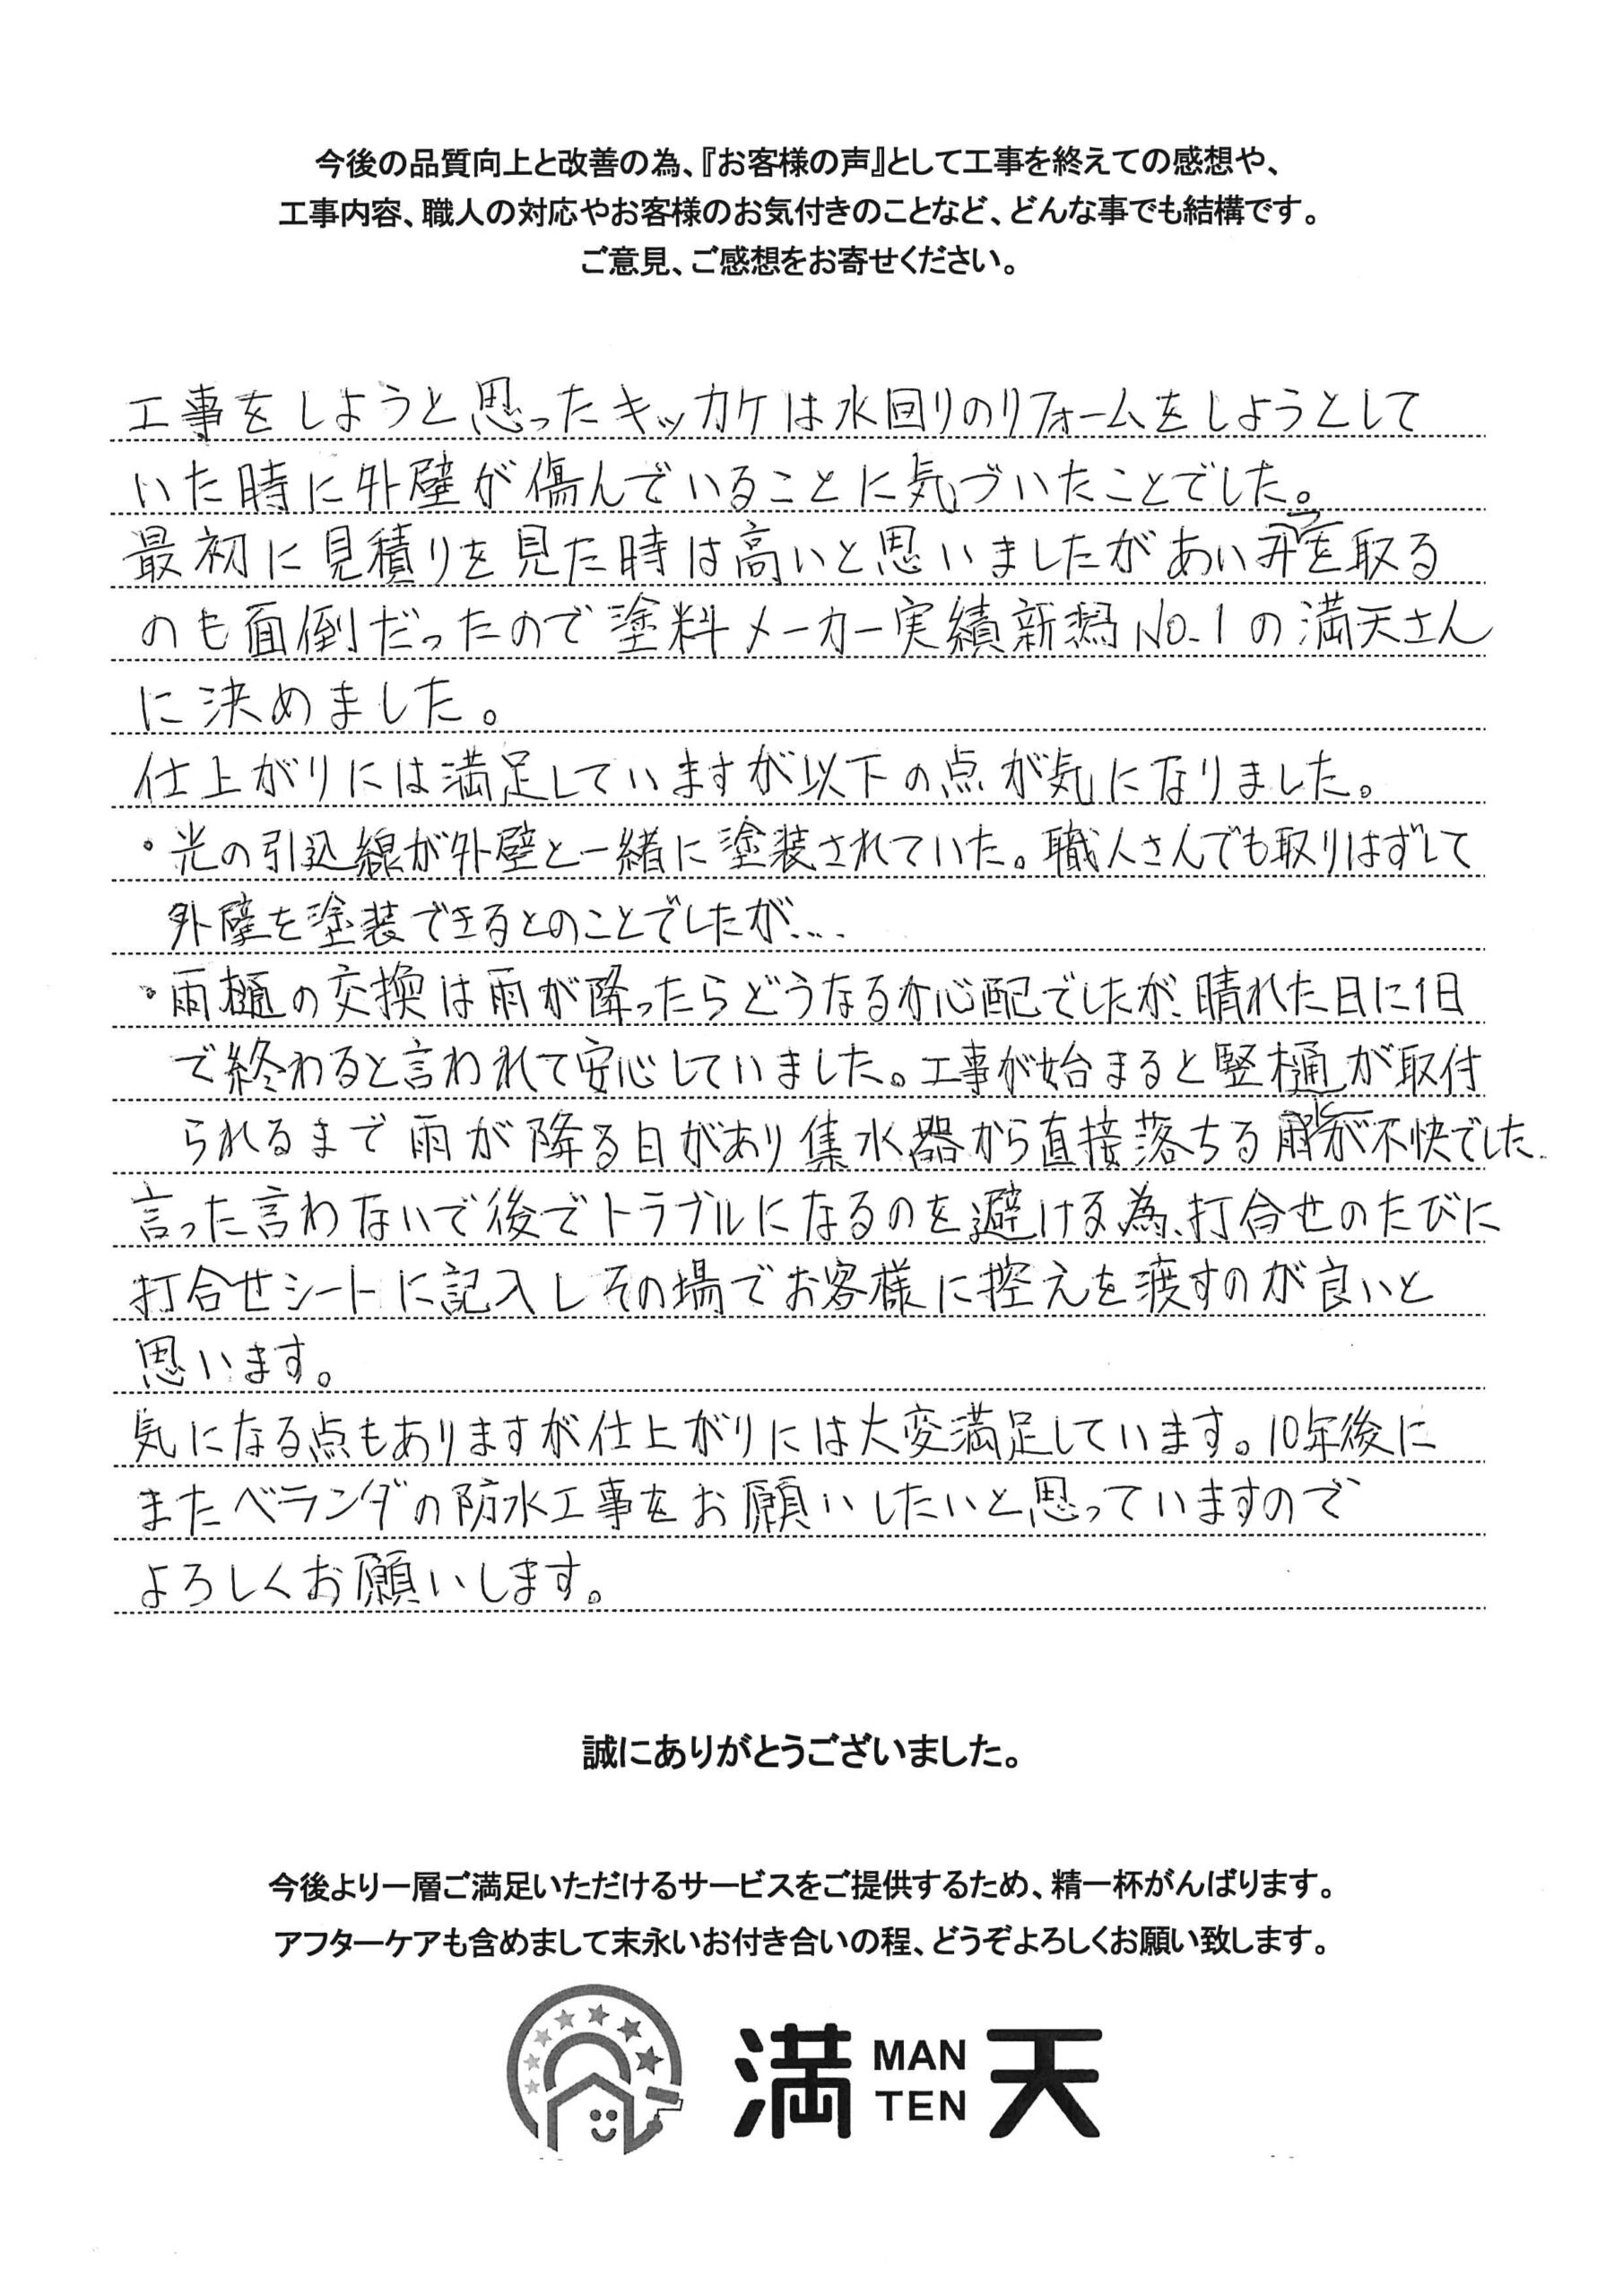 今後の品質向上と改善の為、『お客様の声』として工事を終えての感想や、
工事内容、職人の対応やお客様のお気付きのことなど、どんな事でも結構です。
ご意見、ご感想をお寄せください。
工事をしようと思ったキッカケは水回りのリフォームをしようとして
いた時に外壁が傷んでいることに気づいたことでした。
最初に見積りを見た時は高いと思いましたがあいみつを取る
のも面倒だったので塗料メーカー実績新潟No.1の満天さん
に決めました。
仕上がりには満足していますが以下の点が気になりました。
・光の引込線が外壁と一緒に塗装されていた。職人さんでも取りはずして
外壁を塗装できるとのことでしたが...
・雨樋の交換は雨が降ったらどうなるか心配でしたが、晴れた日に1日
で終わると言われて安心していました。工事が始まると竪樋が取付
られるまで雨が降る日があり集水器から直接落ちる雨が不快でした。
言った言わないで後でトラブルになるのを避ける為、打合せのたびに
打合せシートに記入しその場でお客様に控えを渡すのが良いと
思います。
気になる点もありますが仕上がりには大変満足しています。10年後に
またベランダの防水工事をお願いしたいと思っていますので
よろしくお願いします。
誠にありがとうございました。
今後より一層ご満足いただけるサービスをご提供するため、精一杯がんばります。
アフターケアも含めまして末永いお付き合いの程、どうぞよろしくお願い致します。
満 MAN TEN 天